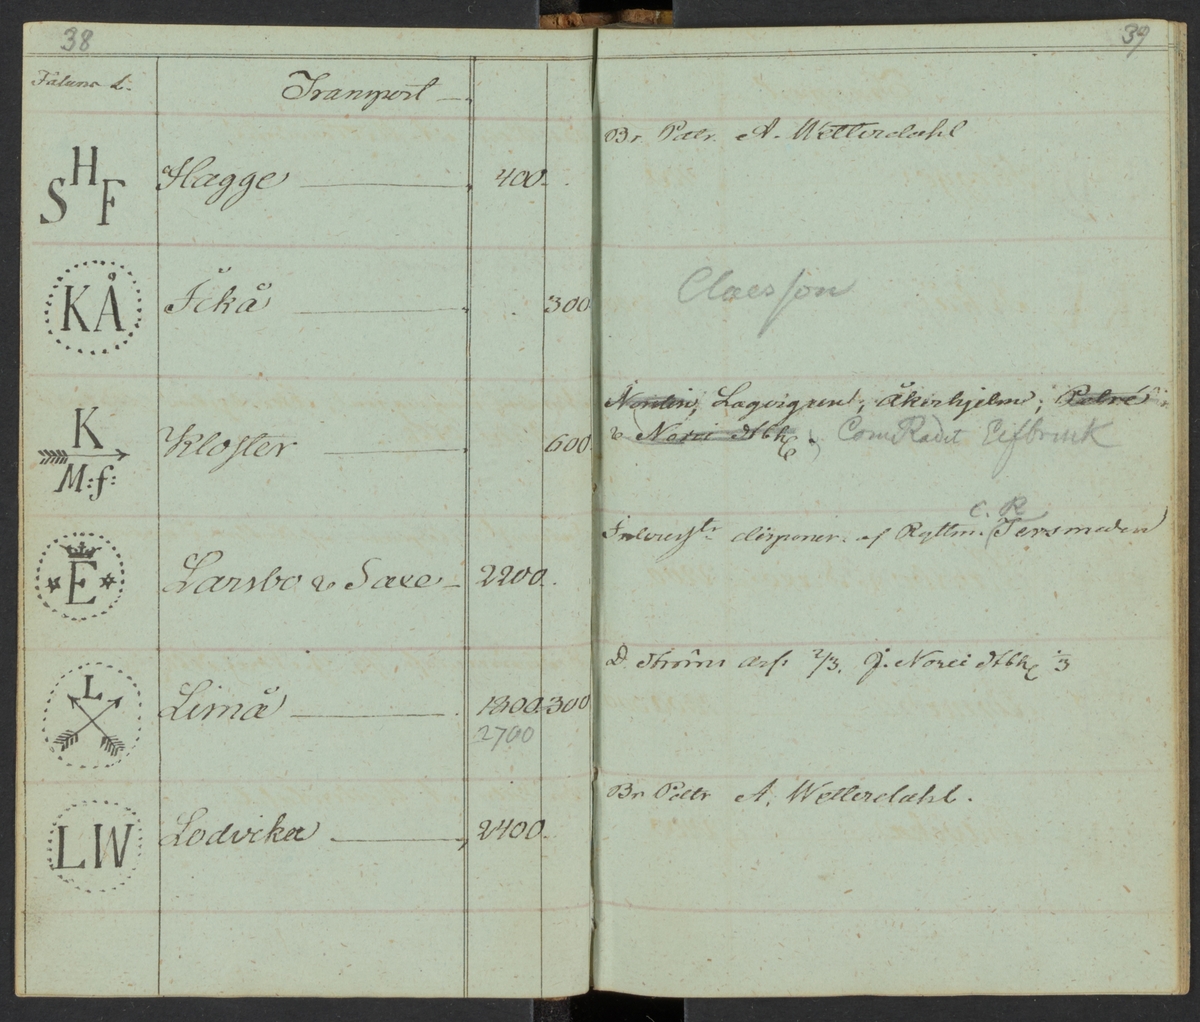 38
Faluns L:
Transport
H
S F
Hagge 400.
KÅ
Ickå 300
K
M:f:
Kloster 600.
E
Larsbo & Saxe 2200.
L
Limå 1800. 300
2700
LW
Lodvika 2400.
39
Br. Patr. A. Wetterdahl
Claesson
Norden, Lagergren, Åkerhjelm; Petré
& Norei Stbh ComRådet Elfbrink
C. R.
disponer. af Ryttm. Tersmeden
D. Ströms arf: 2/3. J. Norei Stbh 1/3
Br. Patr A. Wetterdahl.